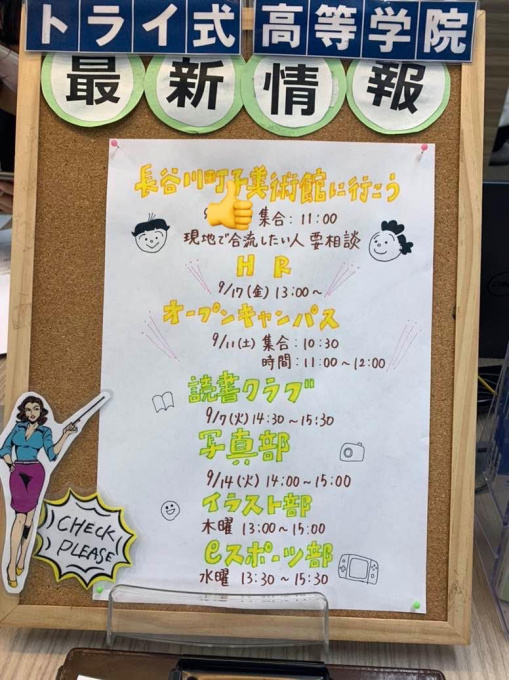 トライ式 高等学院
最新情報
長谷川町子美術館に行こう
集合:11:00
現地で合流したい人要相談
HR
9/17(金) 13:00~
オープンキャンパス
9/11(土) 集合:10:30
時間:11:00~12:00
読書クラブ
9/7(火) 14:30~15:30
写真部
9/14(火) 14:00~15:00
イラスト部
木曜 13:00~15:00
eスポーツ部
水曜 13:30~15:30
CHECK
PLEASE